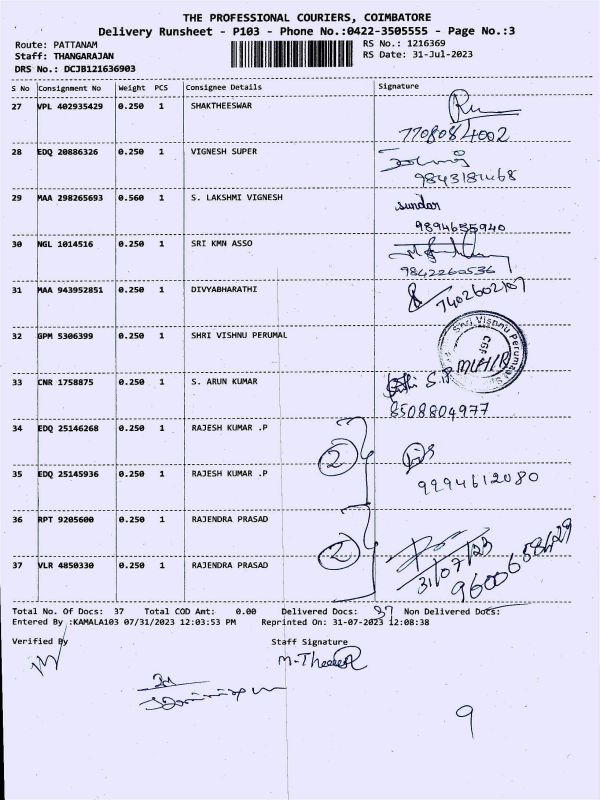 THE PROFESSIONAL COURIERS, COIMBATORE
Delivery Runsheet - P103 - Phone No.:0422-3505555 - Page No.:3
Route: PATTANAM
RS No.: 1216369
Staff: THANGARAJAN
RS Date: 31-Jul-2023
DRS No.: DCJB121636903
S No Consignment No Weight PCS Consignee Details Signature
27 VPL 402935429 0.250 1 SHAKTHEESWAR
7708084002
28 EDQ 20886326 0.250 1 VIGNESH SUPER
9843181468
29 MAA 298265693 0.560 1 S. LAKSHMI VIGNESH
sundar
9894635940
30 NGL 1014516 0.250 1 SRI KMN ASSO
9842260536
31 MAA 943952851 0.250 1 DIVYABHARATHI
7402602107
32 GPM 5306399 0.250 1 SHRI VISHNU PERUMAL
Shri Vishnu Perumal
33 CNR 1758875 0.250 1 S. ARUN KUMAR
8508804977
34 EDQ 25146268 0.250 1 RAJESH KUMAR .P
2
35 EDQ 25145936 0.250 1 RAJESH KUMAR .P
9994612080
36 RPT 9205600 0.250 1 RAJENDRA PRASAD
2
37 VLR 4850330 0.250 1 RAJENDRA PRASAD
31/07/23
Total No. Of Docs: 37 Total COD Amt: 0.00 Delivered Docs: 37 Non Delivered Docs:
Entered By :KAMALA103 07/31/2023 12:03:53 PM Reprinted On: 31-07-2023 12:08:38
Verified By Staff Signature
9